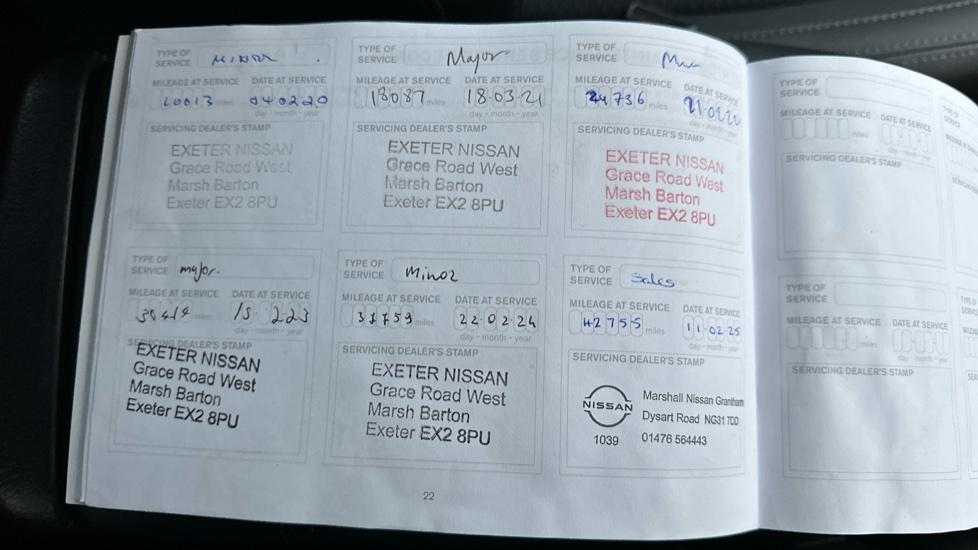 TYPE OF SERVICE MINOR
MILEAGE AT SERVICE DATE AT SERVICE
10013 miles 04 02 20
day - month - year
SERVICING DEALER'S STAMP
EXETER NISSAN
Grace Road West
Marsh Barton
Exeter EX2 8PU
TYPE OF SERVICE Major
MILEAGE AT SERVICE DATE AT SERVICE
18087 miles 18.03.21
day - month - year
SERVICING DEALER'S STAMP
EXETER NISSAN
Grace Road West
Marsh Barton
Exeter EX2 8PU
TYPE OF SERVICE
MILEAGE AT SERVICE DATE AT SERVICE
24736 miles
day - month - year
SERVICING DEALER'S STAMP
EXETER NISSAN
Grace Road West
Marsh Barton
Exeter EX2 8PU
TYPE OF SERVICE major.
MILEAGE AT SERVICE DATE AT SERVICE
miles
day - month - year
SERVICING DEALER'S STAMP
EXETER NISSAN
Grace Road West
Marsh Barton
Exeter EX2 8PU
TYPE OF SERVICE Minor
MILEAGE AT SERVICE DATE AT SERVICE
miles 22.02.24
day - month - year
SERVICING DEALER'S STAMP
EXETER NISSAN
Grace Road West
Marsh Barton
Exeter EX2 8PU
TYPE OF SERVICE Sales
MILEAGE AT SERVICE DATE AT SERVICE
42755 miles 11.02.25
day - month - year
SERVICING DEALER'S STAMP
NISSAN
1039
Marshall Nissan Grantham
Dysart Road NG31 7DD
01476 564443
22
TYPE OF SERVICE
MILEAGE AT SERVICE DATE AT SERVICE
miles
day - month - year
SERVICING DEALER'S STAMP
TYPE OF SERVICE
MILEAGE AT SERVICE DATE AT SERVICE
miles
day - month - year
SERVICING DEALER'S STAMP